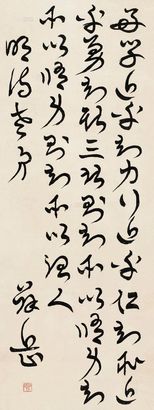 好學近乎知力行近乎仁知恥近
乎勇知斯三者則知所以修身知
所以修身則知所以治人
明
薛岳